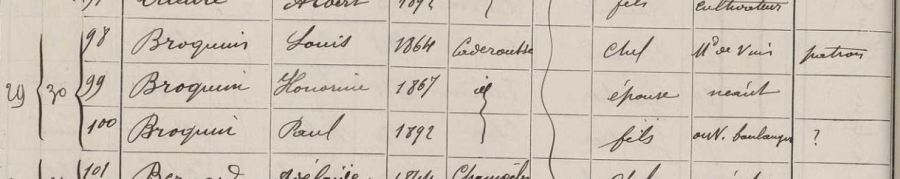 Albert 1892 fils cultivateur
98 Broquin Louis 1864 Caderousse Chef Md de Vins patron
29 30 99 Broquin Honorine 1867 id épouse néant
100 Broquin Paul 1892 fils ouv. boulanger ?
101